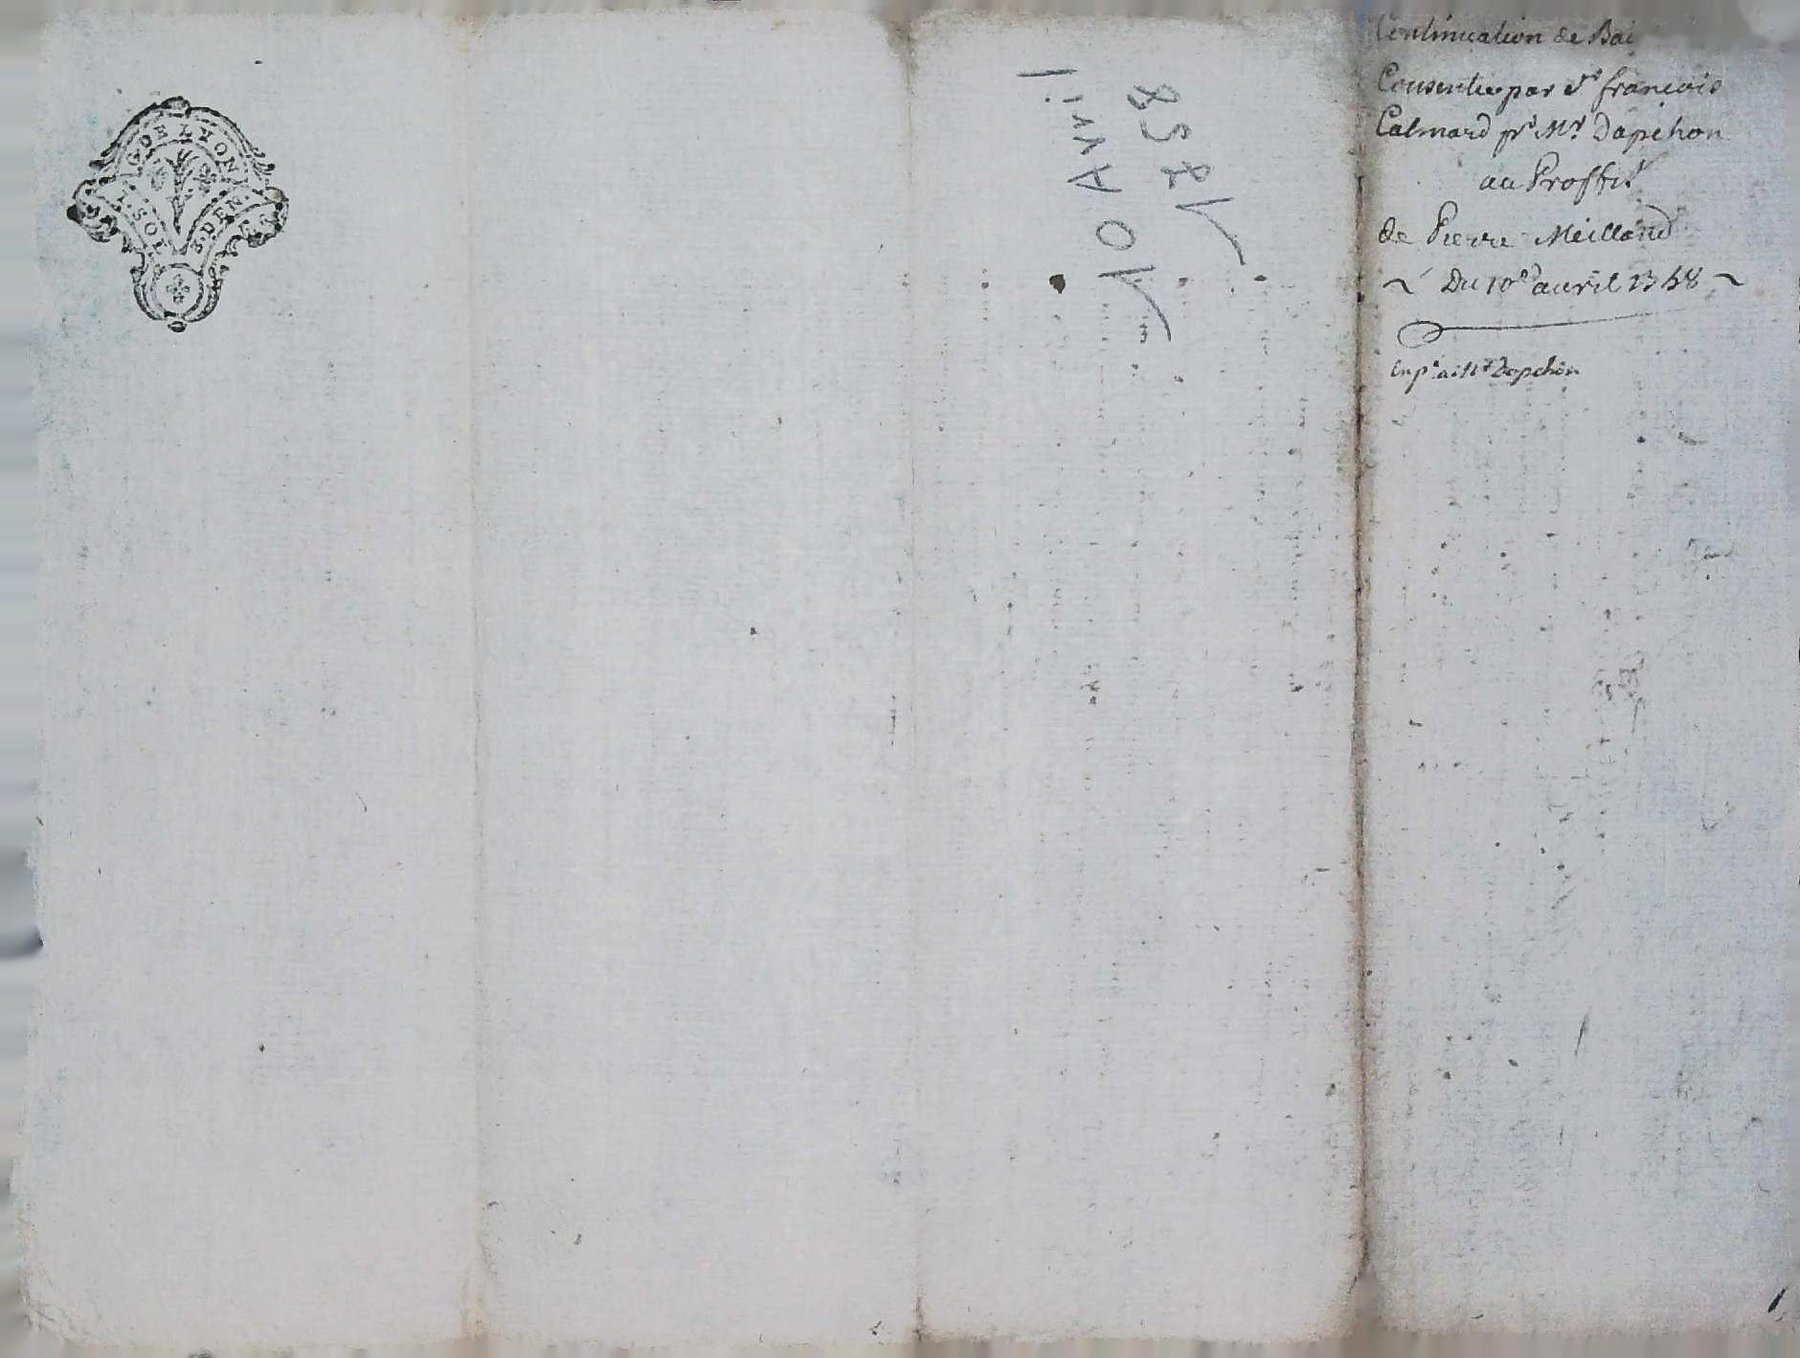 G. DE LYON
1. SOL. 8. DEN.
10 Avril
1758
Continuation de Bail
Consentie par Sr françois
Calmard pr Mr Dapchon
au Proffit
de Pierre Meilland
~ Du 10e avril 1758 ~
Mr Dapchon